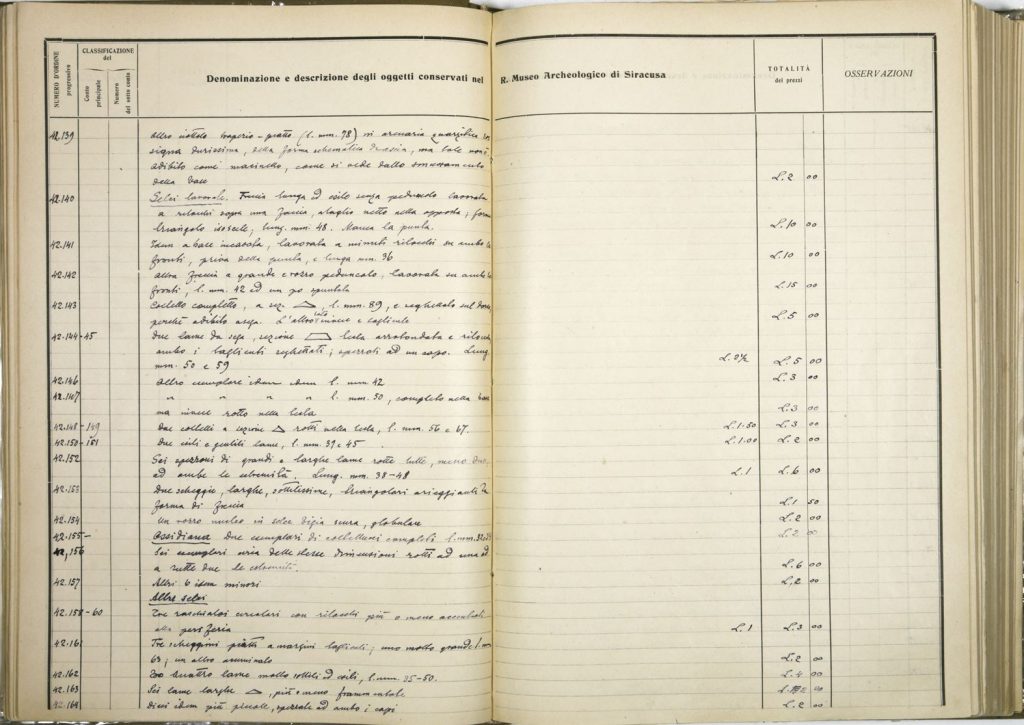 NUMERO D'ORDINE progressivo
CLASSIFICAZIONE del
Conto principale
Numero del sotto conto
Denominazione e descrizione degli oggetti conservati nel R. Museo Archeologico di Siracusa
TOTALITÀ dei prezzi
OSSERVAZIONI
42.139 Altro (l. mm. 78) in arenaria
durissima, della forma schematica, ma tale non è
adibito come, come si vede dallo
della base L. 2 00
42.140 Selci lavorate. Freccia lunga ed esile senza peduncolo lavorata
a ritocchi sopra una faccia, a taglio netto nella opposta; forma
triangolo isoscele, lung. mm. 48. Manca la punta. L. 10 00
42.141 Idem a base incavata, lavorata a minuti ritocchi su ambo le
fronti, priva della punta, e lunga mm. 36 L. 10 00
42.142 Altra freccia a grande e rozzo peduncolo, lavorata su ambo le
fronti, l. mm. 42 ed un po spuntata L. 15 00
42.143 Coltello completto, a sez., l. mm. 89, e seghettato sul dorso
perchè adibito a sega. L'altro lato e tagliente L. 5 00
42.144-45 Due lame da sega, sezione testa arrotondata e
ambo i taglienti seghettati; ad un capo. Lung.
mm. 50 e 59 L. 5 00
42.146 Altro esemplare idem idem l. mm 42 L. 3 00
42.147 " " " " l. mm. 50, completo nella base
ma invece rotto nella testa L. 3 00
42.148-149 Due coltelli a sezione rotti nella testa, l. mm. 56 e 67. L. 1.50 L. 3 00
42.150-151 Due esili e gentili lame, l. mm. 39 e 45 L. 1.00 L. 2 00
42.152 Sei spezzoni di grandi e larghe lame rotte tutte, meno due
ad ambe le estremità. Lung. mm. 38-48 L. 1 L. 6 00
42.153 Due scheggie, larghe, sottilissime, triangolari arieggianti la
forma di freccia L. 1 50
42.154 Un rozzo nucleo in selce grigia scura, globulare L. 2 00
42.155- Ossidiana Due esemplari di coltellucci completi l. mm. L. 2 00
42.156 Sei esemplari delle stesse dimensioni rotti ad una od
a tutte due le estremità. L. 6 00
42.157 Altri 6 idem minori L. 2 00
Altre selci
42.158-60 Tre raschiatoi circolari con ritocchi più o meno accentuati
alla periferia L. 1 L. 3 00
42.161 Tre scheggioni piatti a margini taglienti; uno molto grande l. mm
63; un altro L. 2 00
42.162 quattro lame molto sottili ed esili, l. mm. 35-50. L. 4 00
42.163 Sei lame larghe, più o meno frammentate 00
42.164 Dieci idem più piccole, spezzate ad ambo i capi L. 2 00